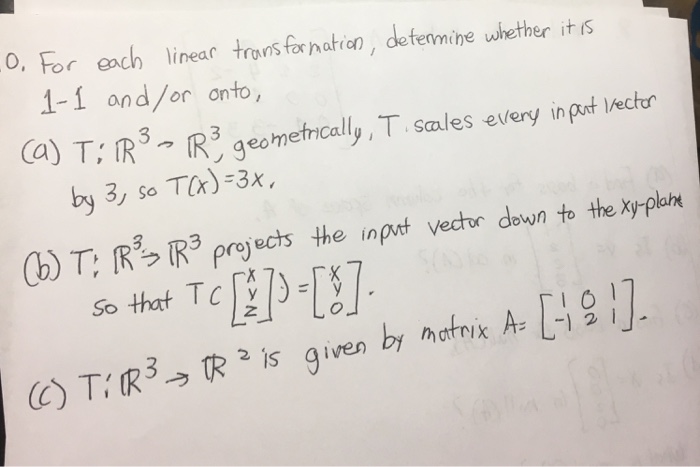 0. For each linear transformation, determine whether it is
1-1 and/or onto.
(a) T: ℝ³ → ℝ³, geometrically, T scales every input vector
by 3, so T(x)=3x.
(b) T: ℝ³ → ℝ³ projects the input vector down to the xy-plane
so that T([x y z]) = [x y 0].
(c) T: ℝ³ → ℝ² is given by matrix A= [1 0 1; -1 2 1].